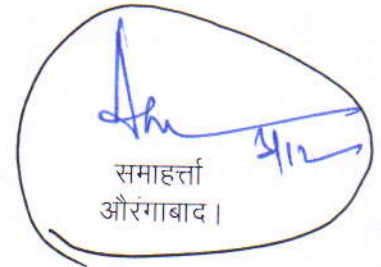 समाहर्त्ता
औरंगाबाद।